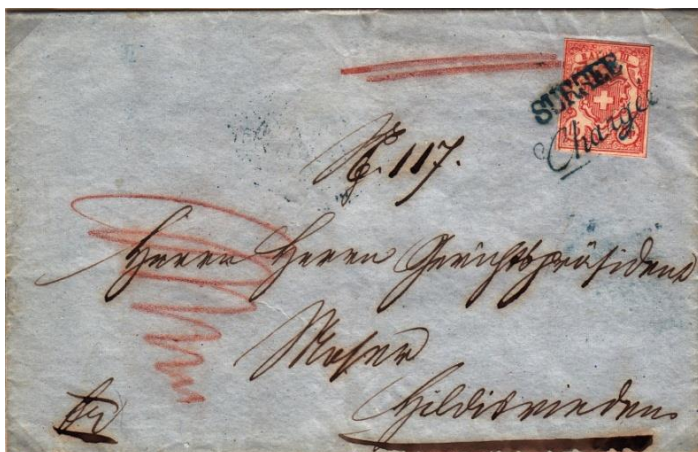 RAYON III
SURSEE
Chargée
No. 117.
Herrn Herrn Gerichtspräsident
Moser
Hildisrieden